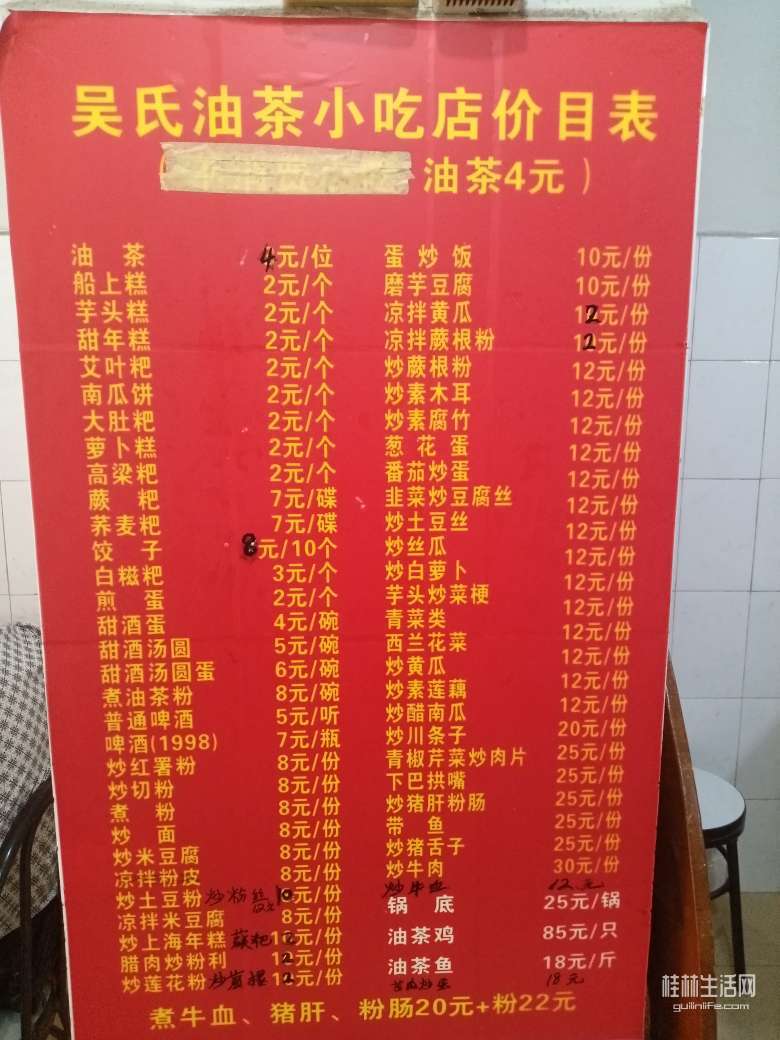 吴氏油茶小吃店价目表
油茶4元）
油茶 4元/位
船上糕 2元/个
芋头糕 2元/个
甜年糕 2元/个
艾叶粑 2元/个
南瓜饼 2元/个
大肚粑 2元/个
萝卜糕 2元/个
高粱粑 2元/个
蕨粑 7元/碟
荞麦粑 7元/碟
饺子 8元/10个
白糍粑 3元/个
煎蛋 2元/个
甜酒蛋 4元/碗
甜酒汤圆 5元/碗
甜酒汤圆蛋 6元/碗
煮油茶粉 8元/碗
普通啤酒 5元/听
啤酒(1998) 7元/瓶
炒红署粉 8元/份
炒切粉 8元/份
煮粉 8元/份
炒面 8元/份
炒米豆腐 8元/份
凉拌粉皮 8元/份
炒土豆粉 炒粉丝 10元/份
凉拌米豆腐 8元/份
炒上海年糕 蕨粑 12元/份
腊肉炒粉利 12元/份
炒莲花粉 12元/份
蛋炒饭 10元/份
磨芋豆腐 10元/份
凉拌黄瓜 12元/份
凉拌蕨根粉 12元/份
炒蕨根粉 12元/份
炒素木耳 12元/份
炒素腐竹 12元/份
葱花蛋 12元/份
番茄炒蛋 12元/份
韭菜炒豆腐丝 12元/份
炒土豆丝 12元/份
炒丝瓜 12元/份
炒白萝卜 12元/份
芋头炒菜梗 12元/份
青菜类 12元/份
西兰花菜 12元/份
炒黄瓜 12元/份
炒素莲藕 12元/份
炒醋南瓜 12元/份
炒川条子 20元/份
青椒芹菜炒肉片 25元/份
下巴拱嘴 25元/份
炒猪肝粉肠 25元/份
带鱼 25元/份
炒猪舌子 25元/份
炒牛肉 30元/份
炒牛血 12元
锅底 25元/锅
油茶鸡 85元/只
油茶鱼 18元/斤
苦瓜炒蛋 18元
煮牛血、猪肝、粉肠20元+粉22元
桂林生活网
guilinlife.com